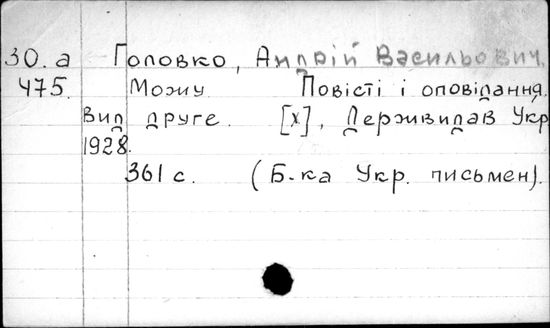 30.а Головко, Андрій Васильович.
475. Можу Повісті і оповідання.
Вид друге. [х], Держвидав Укр
1928.
361 с. (Б-ка Укр. письмен).